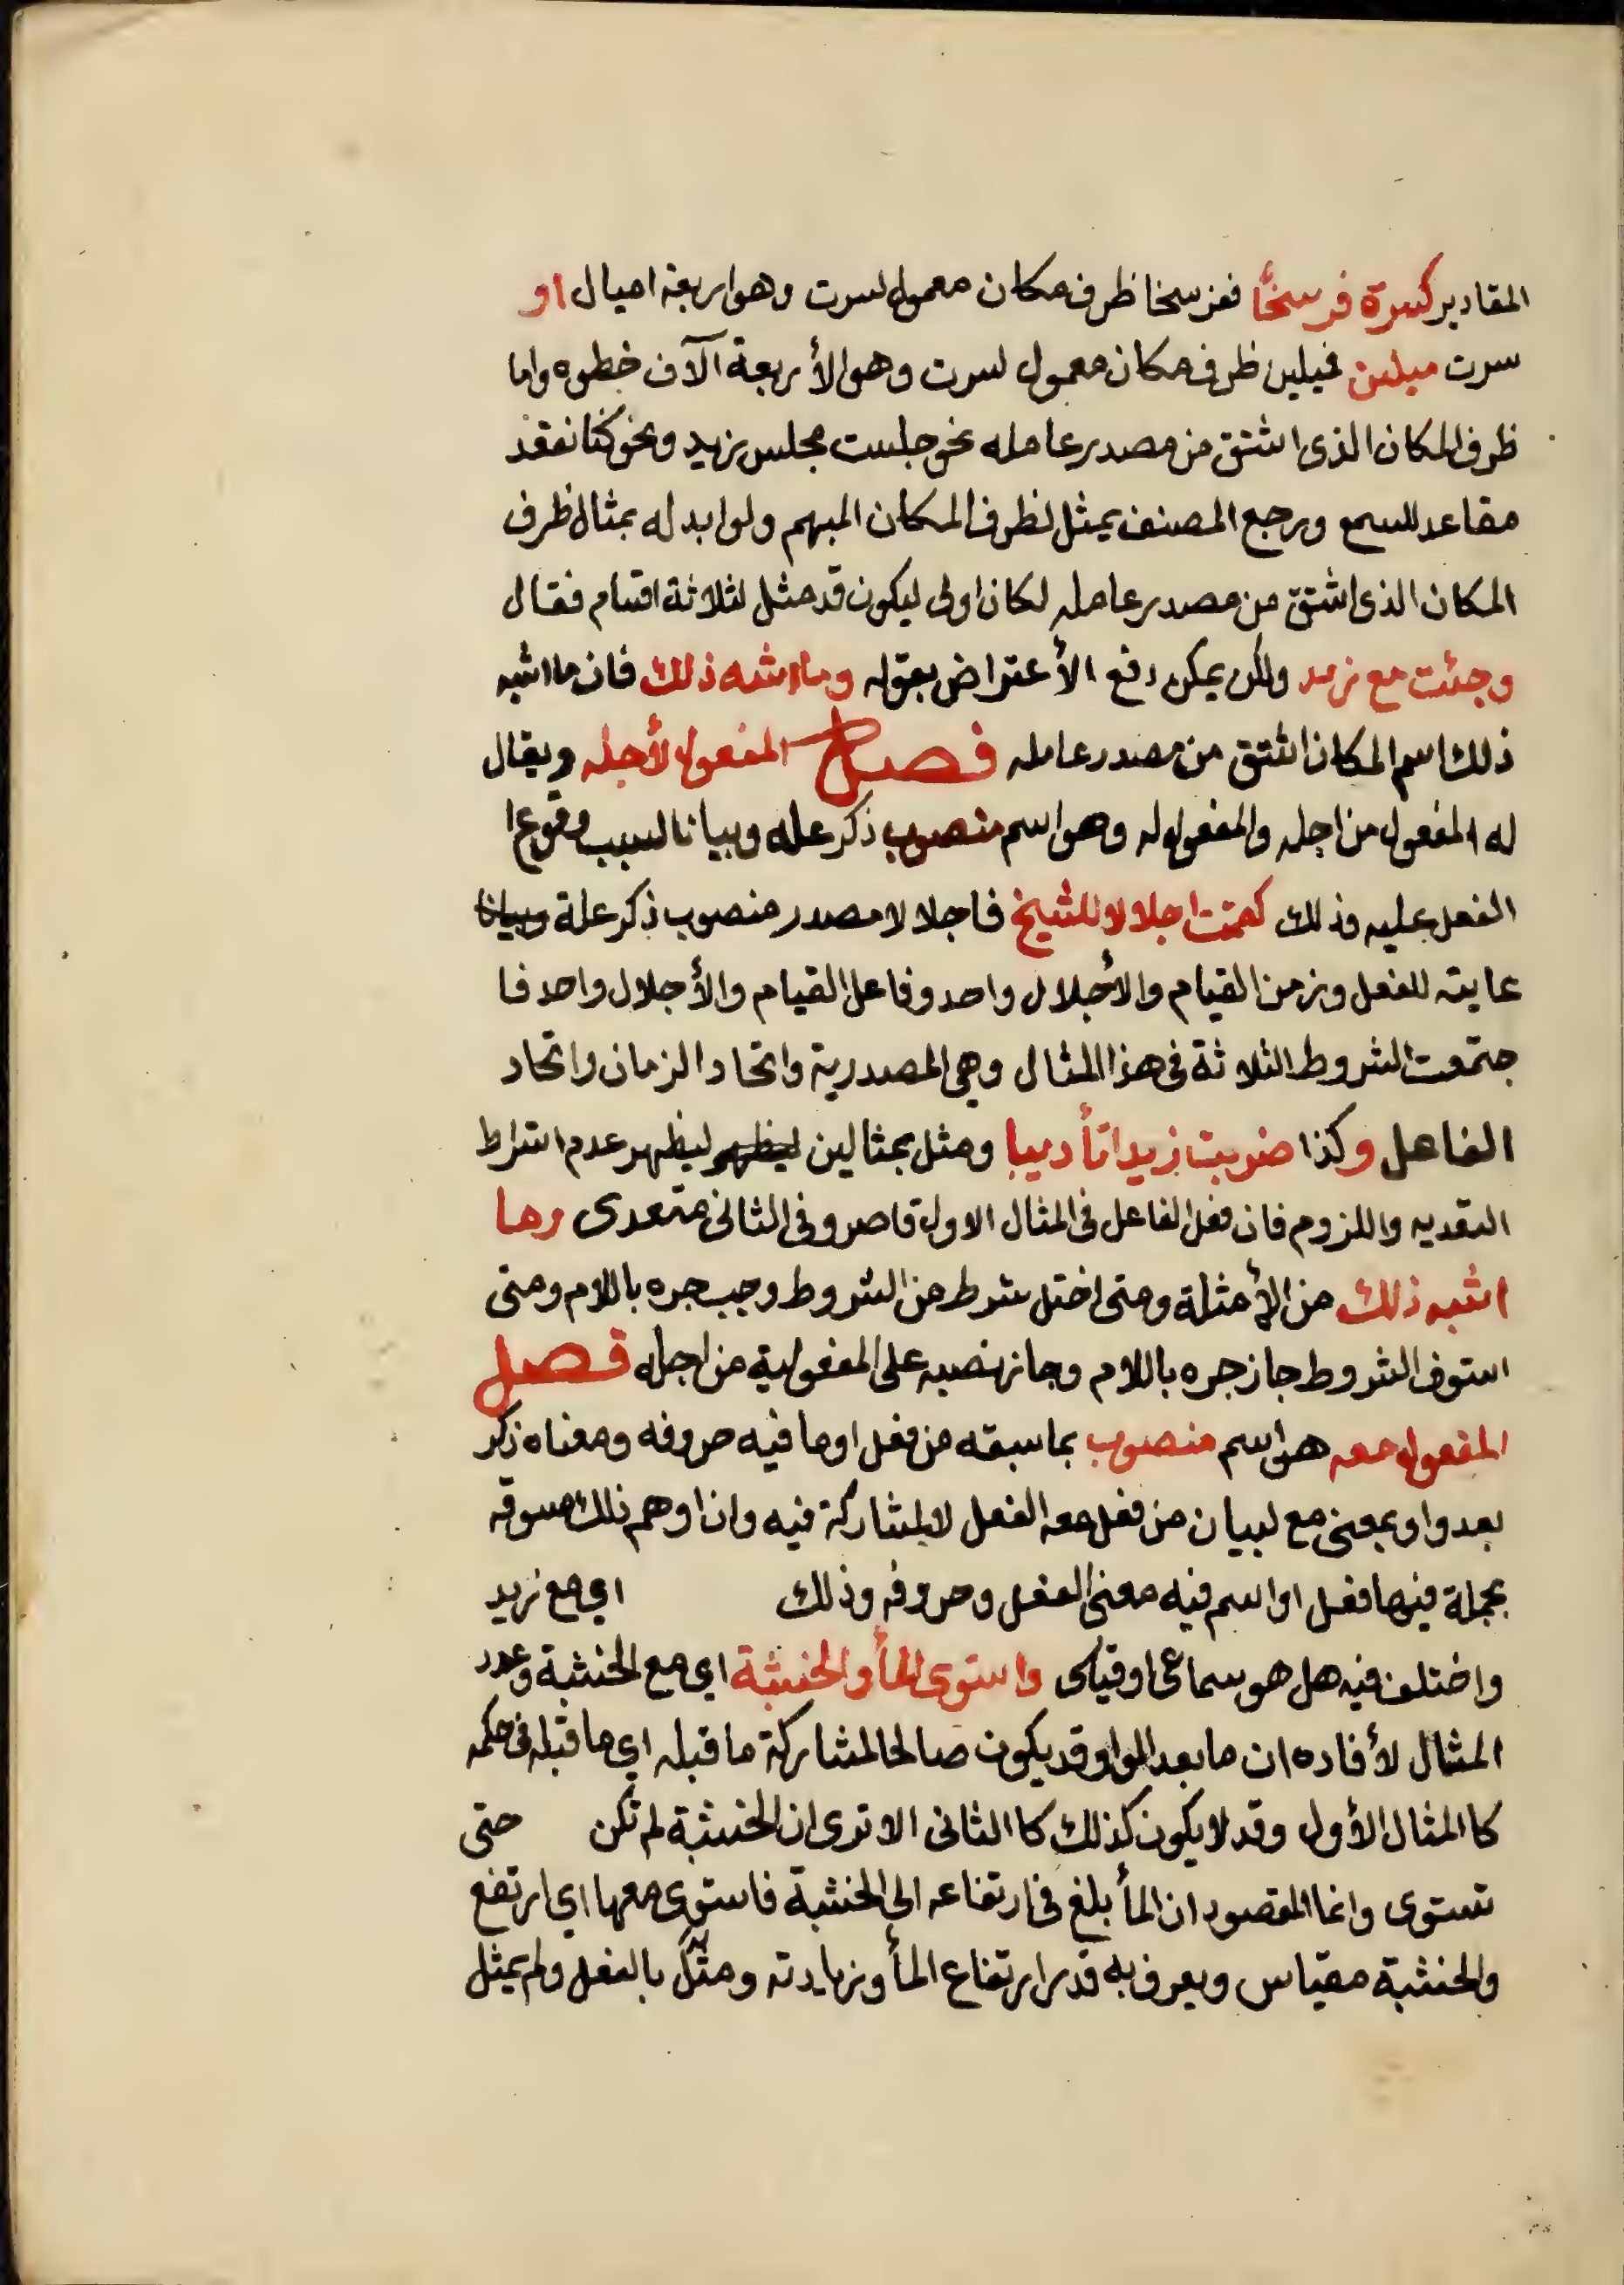 المقادير كسرة فرسخًا ففرسخا ظرف مكان معمول لسرت وهو اربعة اميال او
سرت ميلين فميلين ظرف مكان معمول لسرت وهو الأربعة آلاف خطوه واما
ظرف المكان الذى اشتق من مصدر عامله نحو جلست مجلس زيد ونحو كنا نقعد
مقاعد للسمع ورجع المصنف يمثل لظرف المكان المبهم ولو ابدله بمثال ظرف
المكان الذى اشتق من مصدر عامله لكان اولى ليكون قد مثل لثلاثة اقسام فقال
وجئت مع زيد ولكن يمكن دفع الأعتراض بقوله وما اشبه ذلك فان ما اشبه
ذلك اسم المكان اشتق من مصدر عامله فصل المفعول لأجله ويقال
له المفعول من اجله والمفعول له وهو اسم منصوب ذكر عله وبيانا لسبب وقوع ا
الفعل عليه وذلك كقمت اجلالا للشيخ فاجلالا مصدر منصوب ذكر علة وبيانا
عايته للفعل وزمن القيام والأجلال واحد وفاعل القيام والأجلال واحد فا
جتمعت الشروط الثلاثة فى هذا المثال وهي المصدرية واتحاد الزمان واتحاد
الفاعل وكذا ضربت زيدا تأديبا ومثل بمثالين ليظهر ليظهر عدم اشراط
التعديه واللزوم فان فعل الفاعل فى المثال الاول قاصر وفى الثانى متعدى وما
اشبه ذلك من الأمثلة ومتى اختل شرط من الشروط وجب جره باللام ومتى
استوف الشروط جاز جره باللام وجاز نصبه على المفعولية من اجله فصل
المفعول معه هو اسم منصوب بما سبقه من فعل او ما فيه حروفه ومعناه ذكر
بعد واو بمعنى مع لبيان من فعل معه الفعل لا لمشاركة فيه وان اوهم ذلك مسوقه
بجملة فيها فعل او اسم فيه معنى الفعل وحروفه وذلك اي مع زيد
واختلف فيه هل هو سماعى او قياسى واستوى المأ والخشبة اي مع الخشبة وعدد
المثال لأفاده ان ما بعد الواو قد يكون صالحا لمشاركة ما قبله اي ما قبله فى حكمه
كا المثال الأول وقد لا يكون كذلك كا الثانى الا ترى ان الخشبة لم تكن حتى
تستوى وانما المقصود ان المأ بلغ فى ارتفاعه الى الخشبة فاستوى معها اي ارتفع
والخشبة مقياس ويعرف به قدر ارتفاع المأ وزيادته ومثل بالفعل ولم يمثل